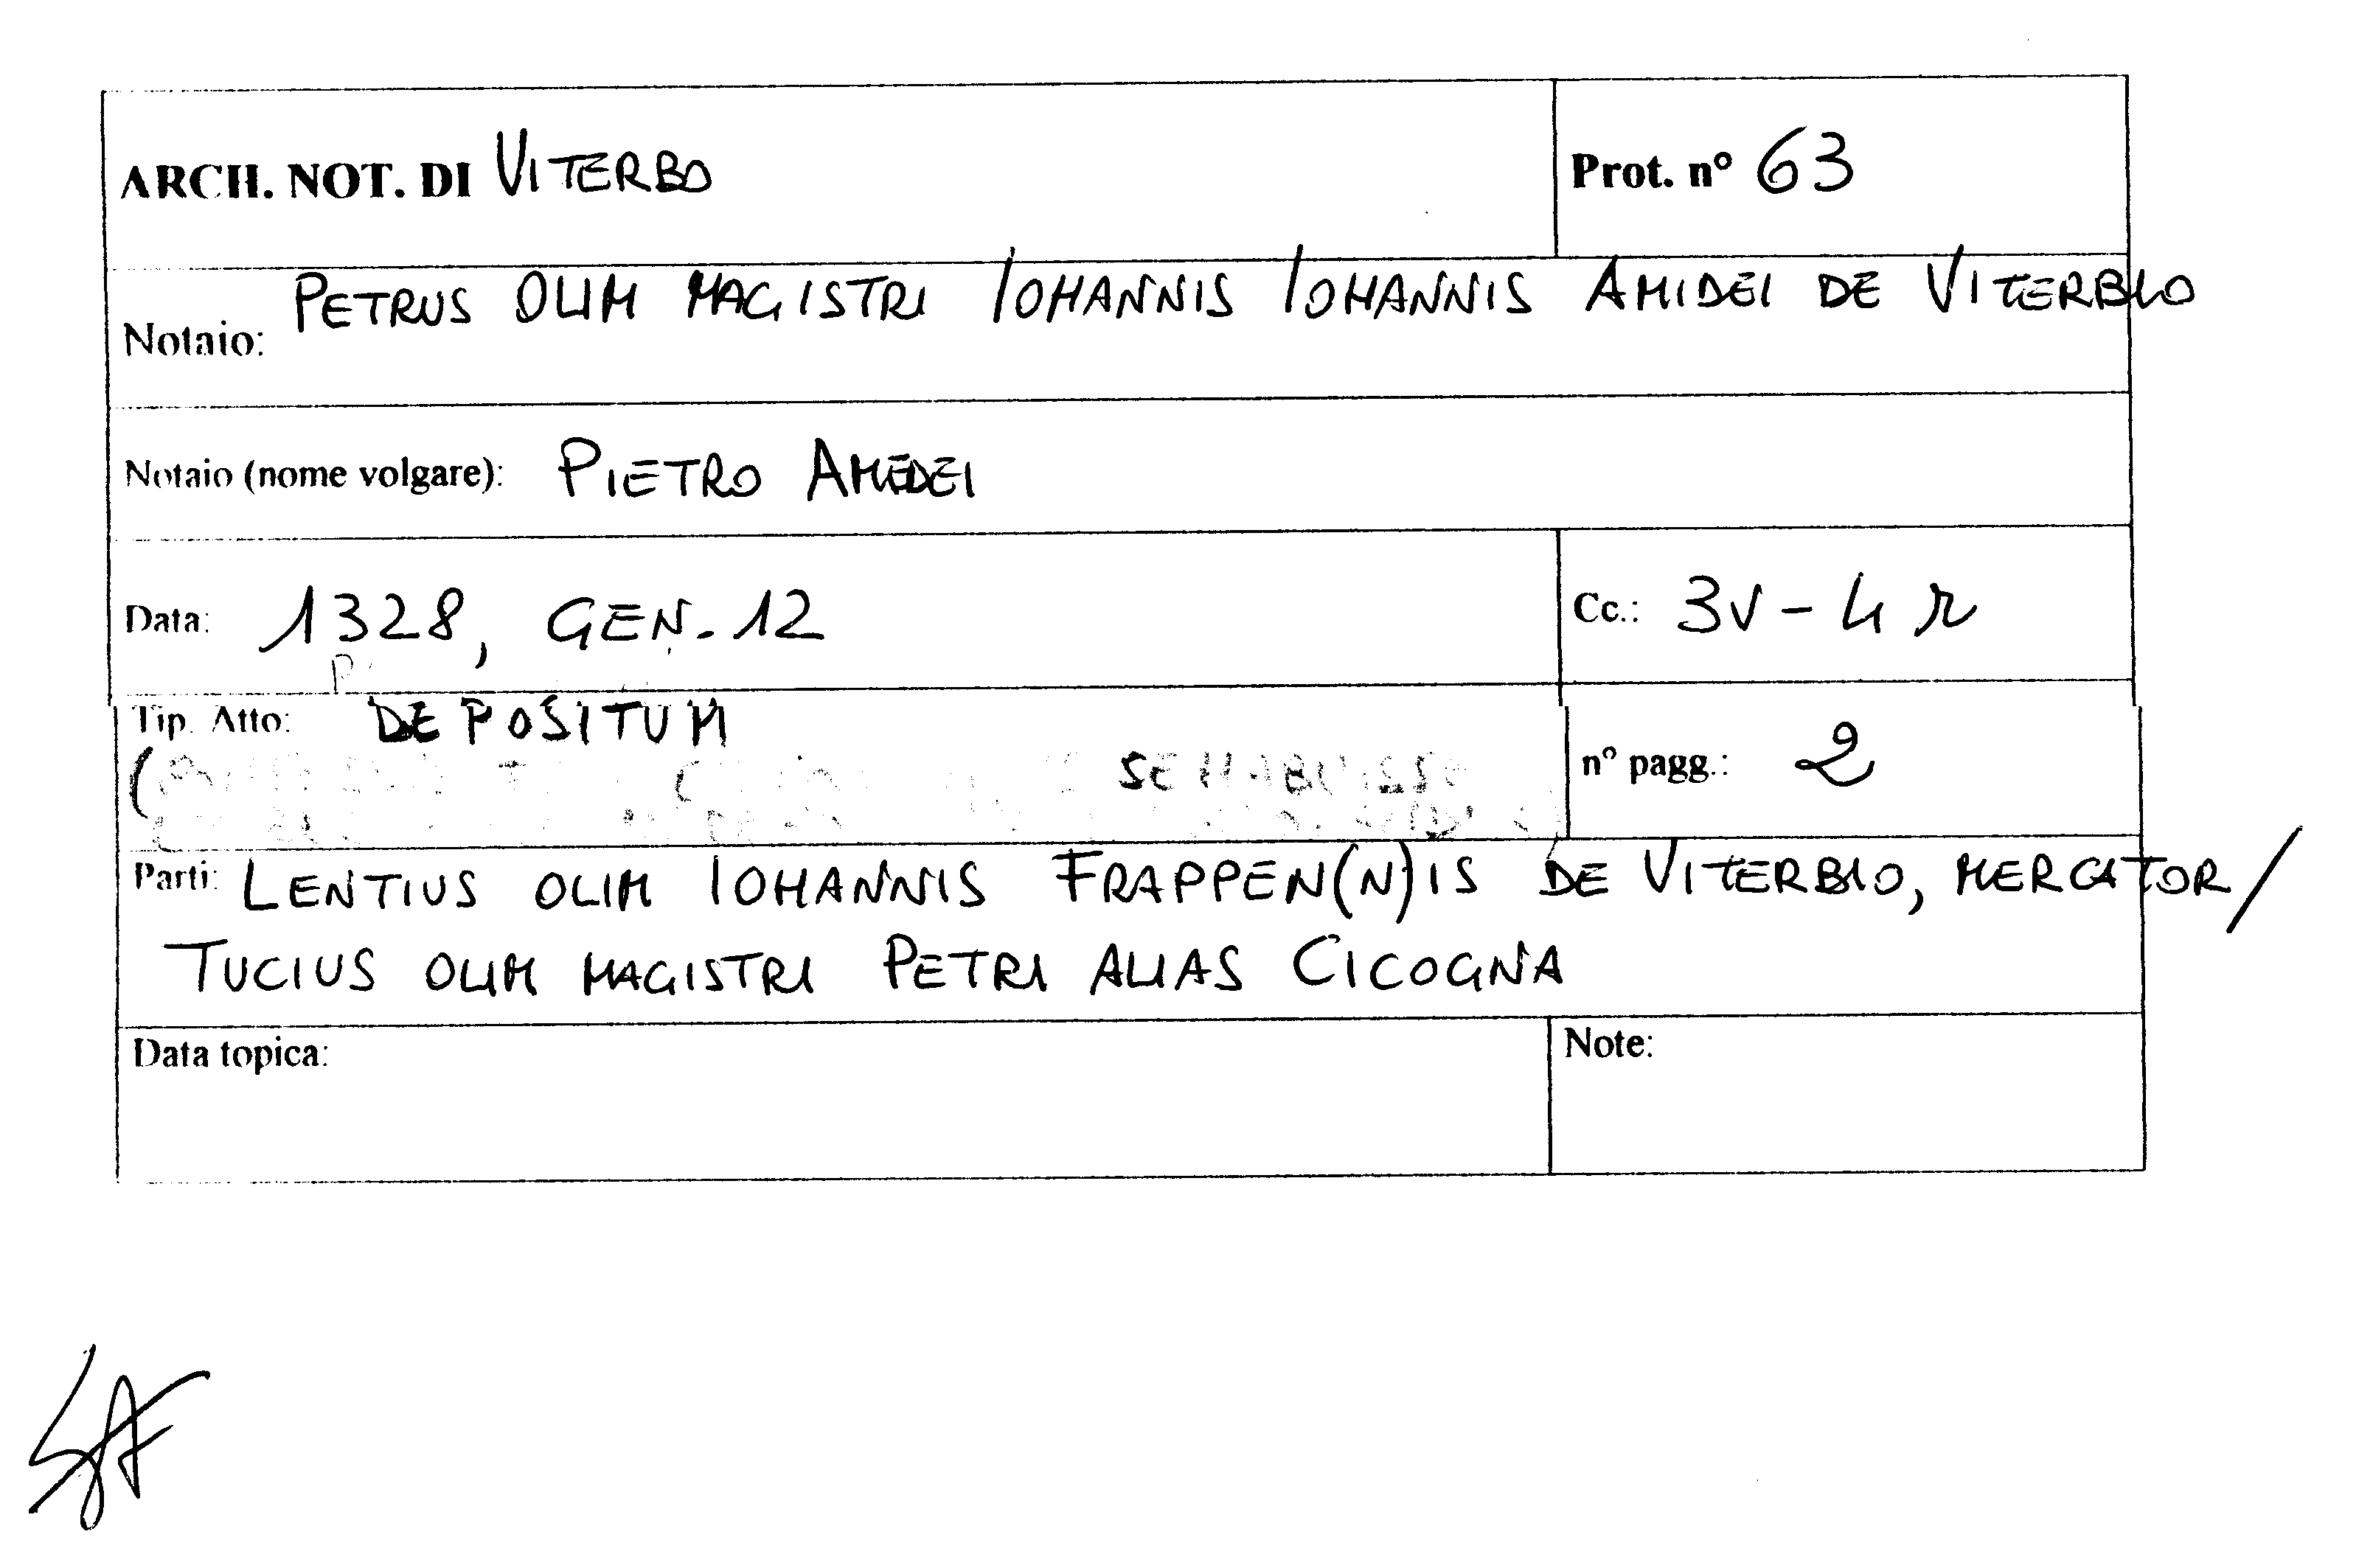 ARCH. NOT. DI VITERBO
Prot. n° 63
Notaio: PETRUS OLIM MAGISTRI IOHANNIS IOHANNIS AMIDEI DE VITERBIO
Notaio (nome volgare): PIETRO AMEDEI
Data: 1328, GEN. 12
Cc.: 3v - 4 r
Tip. Atto: DEPOSITUM
n° pagg.: 2
Parti: LENTIUS OLIM IOHANNIS FRAPPEN(N)IS DE VITERBIO, MERCATOR/
TUCIUS OLIM MAGISTRI PETRI ALIAS CICOGNA
Data topica:
Note: